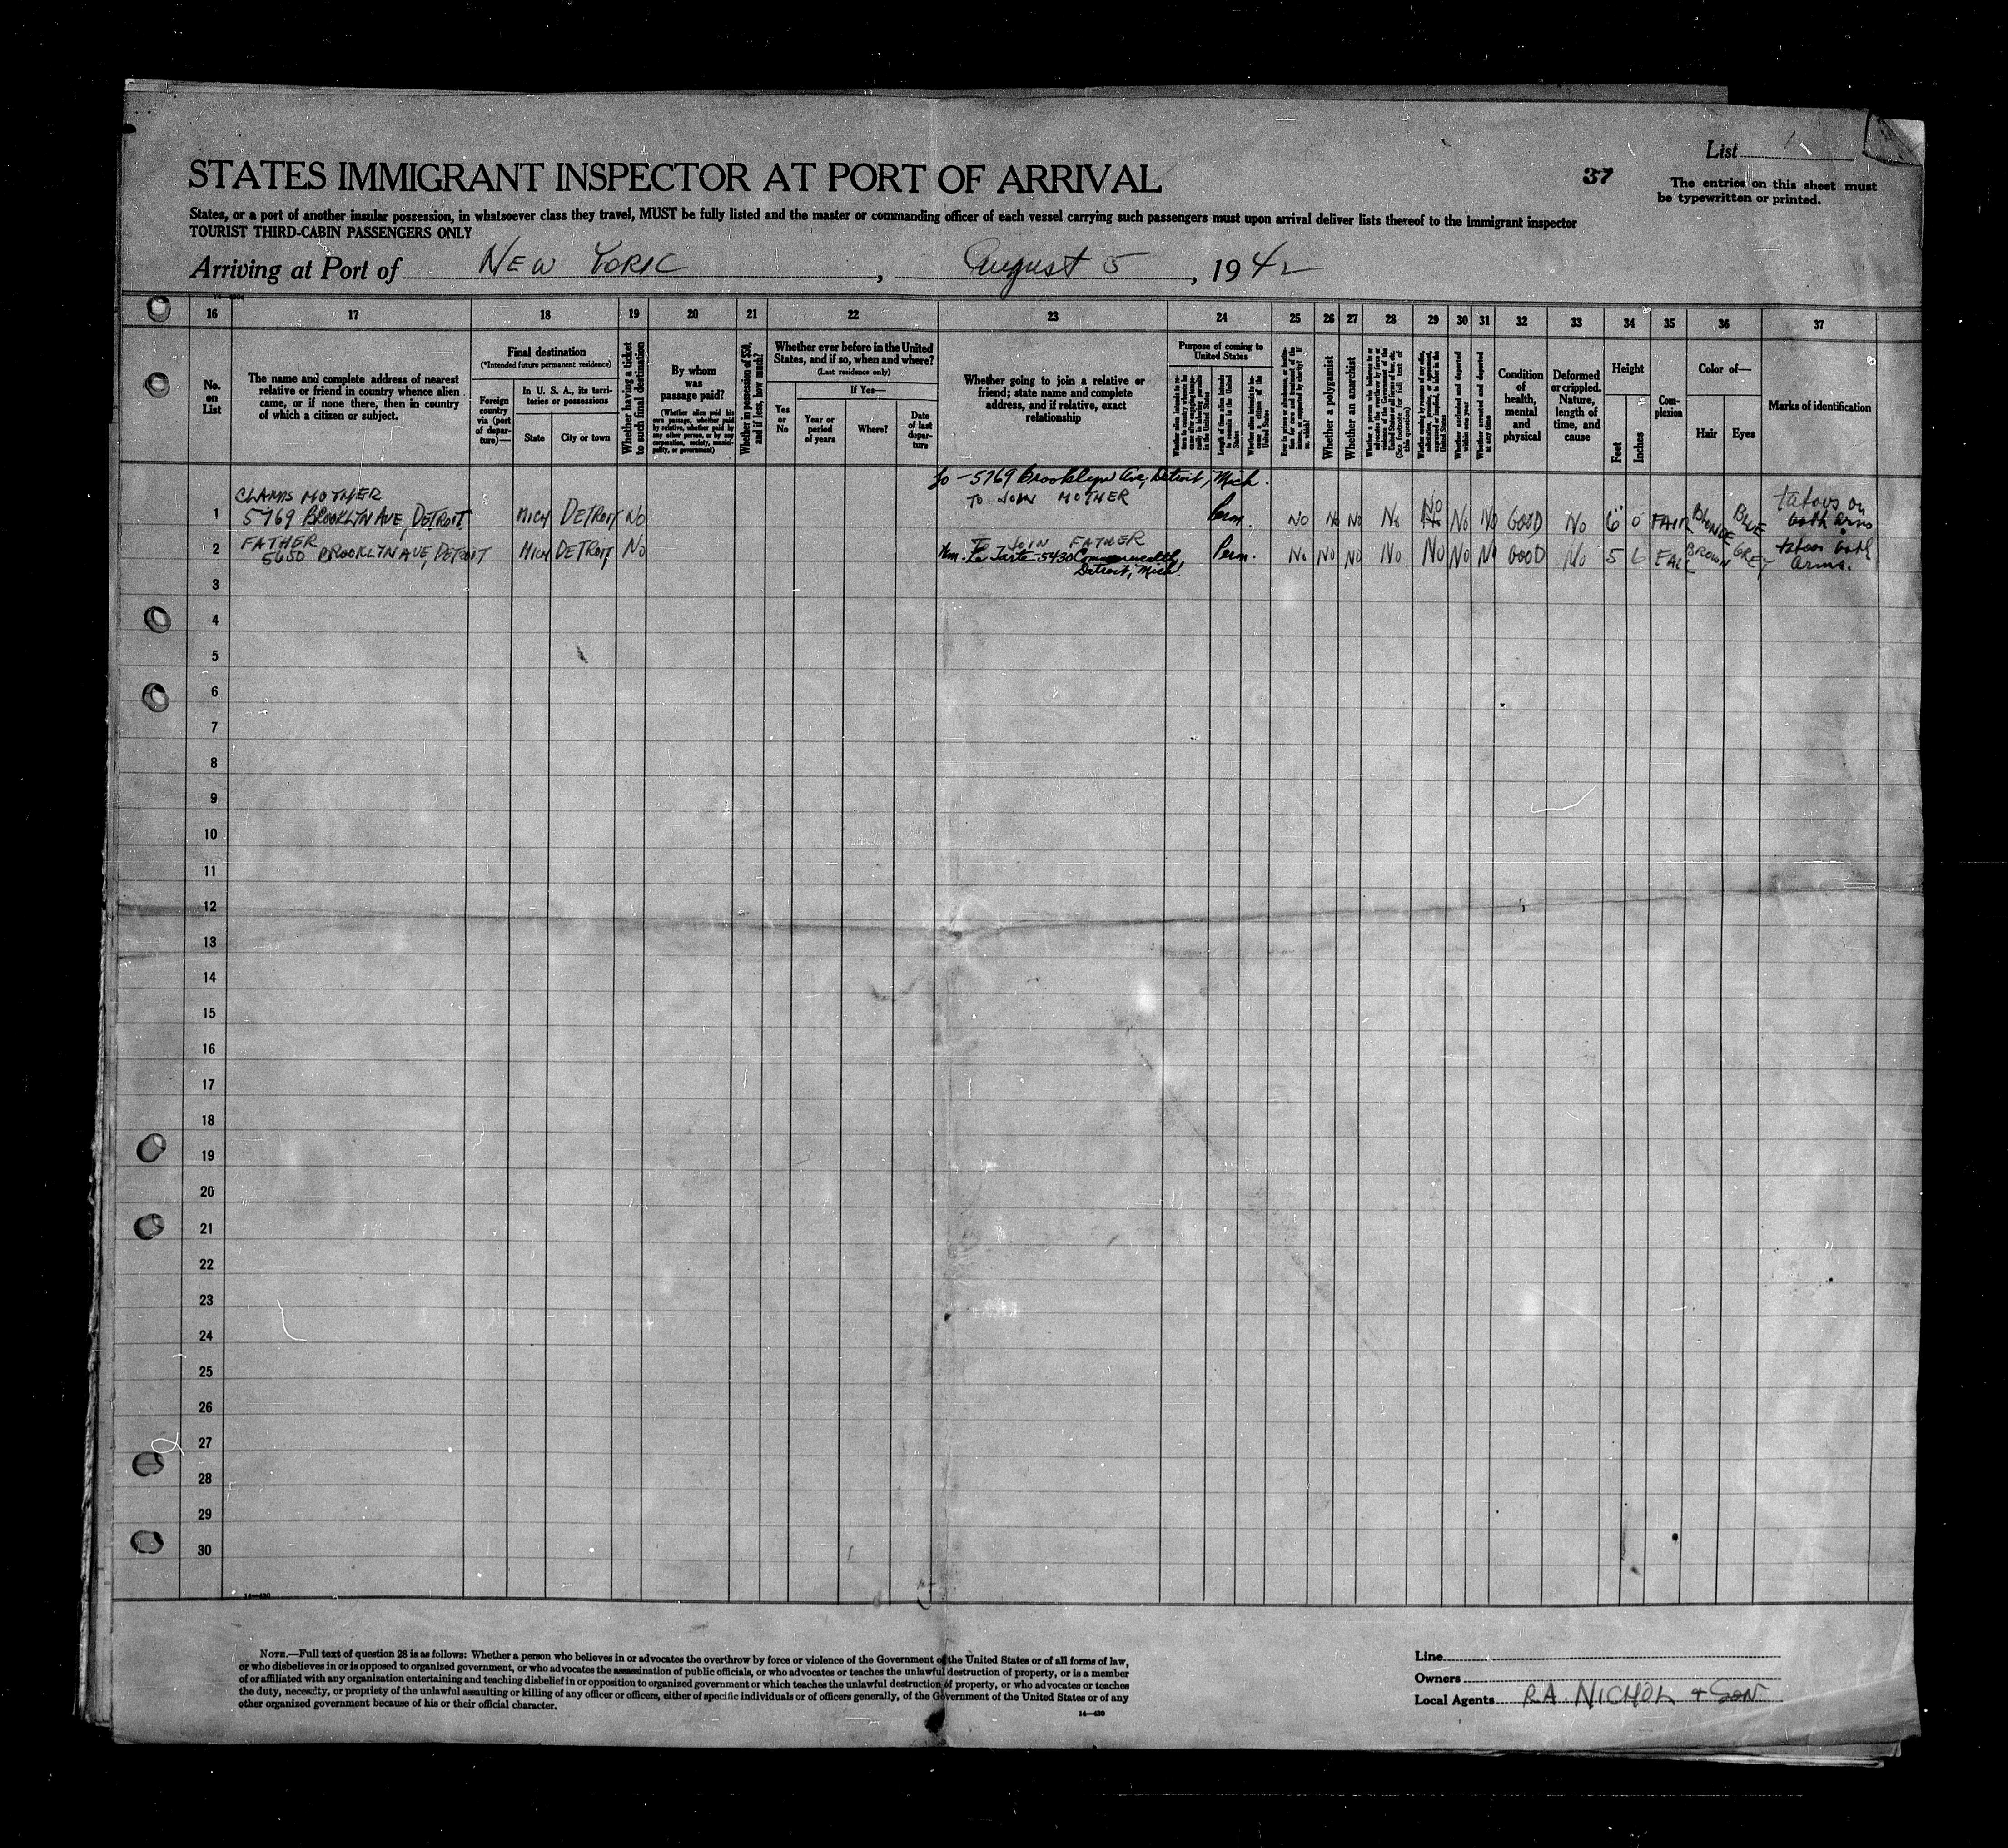 List 1
STATES IMMIGRANT INSPECTOR AT PORT OF ARRIVAL
37
The entries on this sheet must
be typewritten or printed.
States, or a port of another insular possession, in whatsoever class they travel, MUST be fully listed and the master or commanding officer of each vessel carrying such passengers must upon arrival deliver lists thereof to the immigrant inspector
TOURIST THIRD-CABIN PASSENGERS ONLY
Arriving at Port of NEW YORK, August 5, 1942
16 17 18 19 20 21 22 23 24 25 26 27 28 29 30 31 32 33 34 35 36 37
No.
on
List
The name and complete address of nearest
relative or friend in country whence alien
came, or if none there, then in country
of which a citizen or subject.
Final destination
(*Intended future permanent residence)
Foreign
country
via (port
of depar-
ture)—
In U. S. A., its terri-
tories or possessions
State
City or town
Whether having a ticket
to such final destination
By whom
was
passage paid?
(Whether alien paid his
own passage, whether paid
by relative, whether paid by
any other person, or by any
corporation, society, munici-
pality, or government)
Whether in possession of $50,
and if less, how much?
Whether ever before in the United
States, and if so, when and where?
(Last residence only)
Yes
or
No
If Yes—
Year or
period
of years
Where?
Date
of last
depar-
ture
Whether going to join a relative or
friend; state name and complete
address, and if relative, exact
relationship
Purpose of coming to
United States
Length of time alien intends
to remain in the United
States
Whether a polygamist
Whether an anarchist
Whether excluded and deported
within one year
Whether arrested and deported
at any time
Condition
of
health,
mental
and
physical
Deformed
or crippled.
Nature,
length of
time, and
cause
Height
Feet
Inches
Com-
plexion
Color of—
Hair
Eyes
Marks of identification
to - 5769 Brooklyn Ave, Detroit, Mich.
CLAIMS MOTHER TO JOIN MOTHER tatoos on
1 5769 BROOKLYN AVE, DETROIT MICH DETROIT NO Perm. NO NO NO NO NO NO NO GOOD NO 6 0 FAIR BLONDE BLUE both arms
FATHER TO JOIN FATHER
2 5650 BROOKLYN AVE, DETROIT MICH DETROIT NO 5430 Commonwealth Perm. NO NO NO NO NO NO NO GOOD NO 5 6 BROWN GREY tatoos both
Detroit, Mich. arms.
3
4
5
6
7
8
9
10
11
12
13
14
15
16
17
18
19
20
21
22
23
24
25
26
27
28
29
30
14—430
NOTE.—Full text of question 28 is as follows: Whether a person who believes in or advocates the overthrow by force or violence of the Government of the United States or of all forms of law,
or who disbelieves in or is opposed to organized government, or who advocates the assassination of public officials, or who advocates or teaches the unlawful destruction of property, or is a member
of or affiliated with any organization entertaining and teaching disbelief in or opposition to organized government or which teaches the unlawful destruction of property, or who advocates or teaches
the duty, necessity, or propriety of the unlawful assaulting or killing of any officer or officers, either of specific individuals or of officers generally, of the Government of the United States or of any
other organized government because of his or their official character.
14—430
Line
Owners
Local Agents R.A. NICHOL & SON